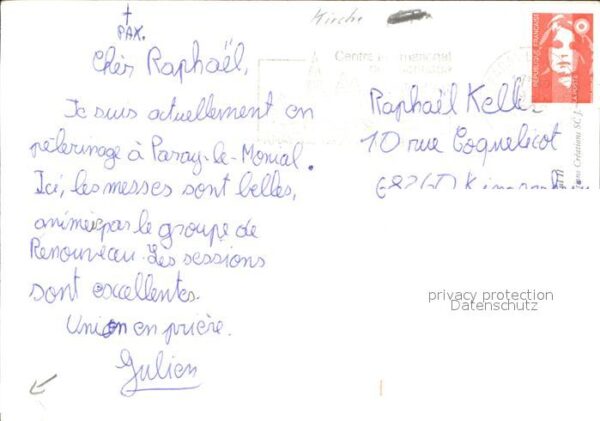 PAX.
Kirche
Chèr Raphaël,
Je suis actuellement en
pèlerinage à Paray-le-Monial.
Ici, les messes sont belles,
animée par le groupe de
Renouveau. Les sessions
sont excellentes.
Union en prière.
Julien
Centre international
REPUBLIQUE FRANÇAISE
LA POSTE
Raphaël Kelle
10 rue Coquelicot
Créations SCJ
privacy protection
Datenschutz